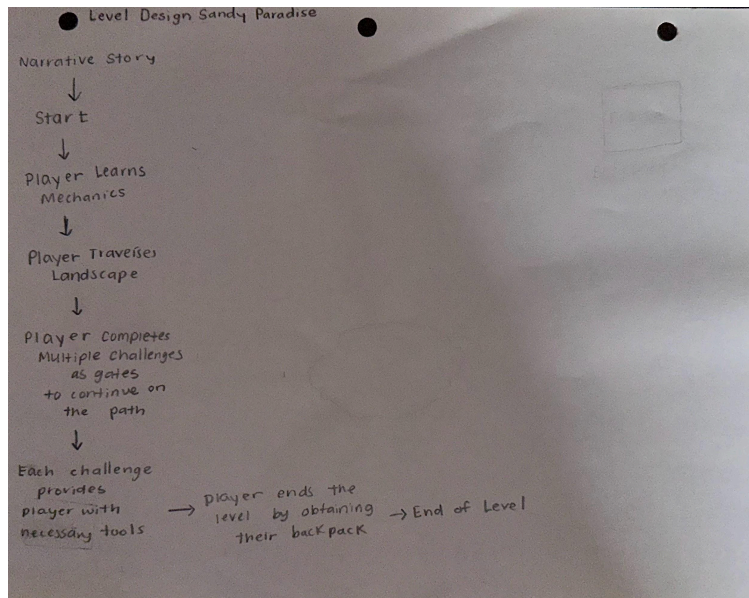 Level Design Sandy Paradise
Narrative Story
↓
Start
↓
Player Learns
Mechanics
↓
Player Traverses
Landscape
↓
Player Completes
Multiple Challenges
as gates
to continue on
the path
↓
Each challenge
provides
player with
necessary tools
→
player ends the
level by obtaining
their backpack
→ End of Level